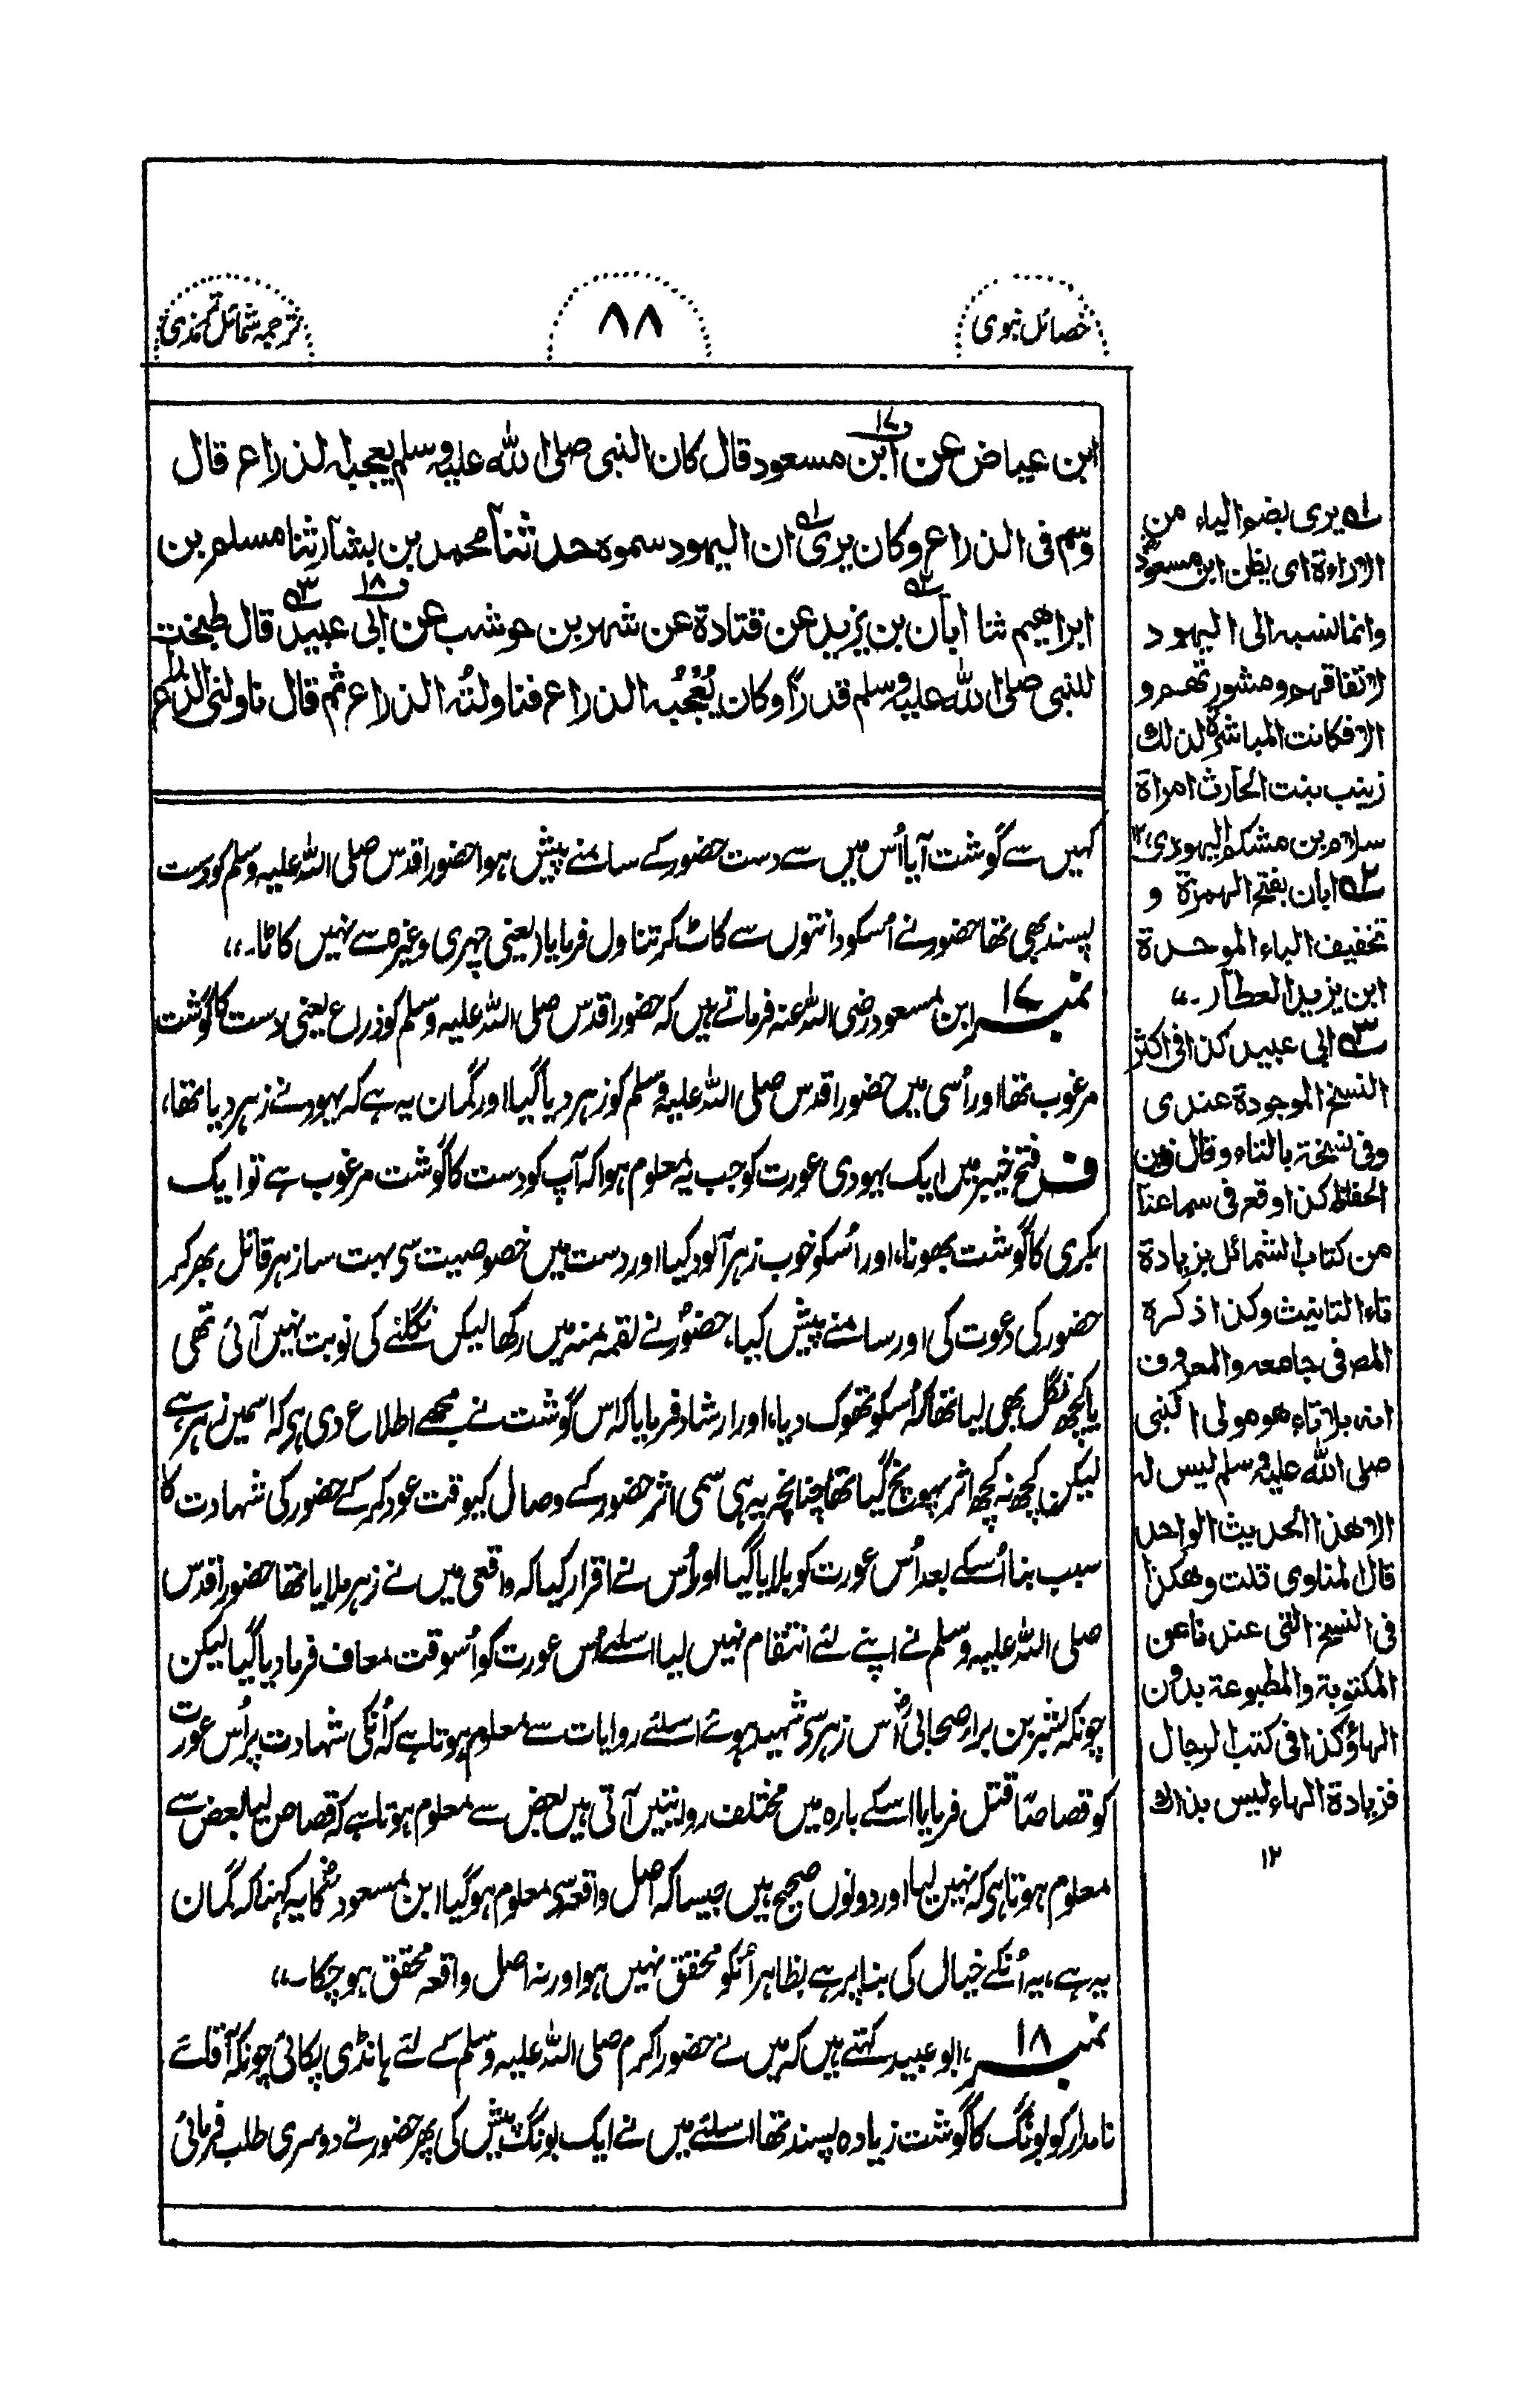 خصائل نبوی
٨٨
ترجمہ شمائل ترمذی
ابن عیاض عن ابن مسعود قال كان النبی صلی الله علیه وسلم یعجبه الذراع قال
وسم فی الذراع وكان یری ان الیهود سموه حدثنا محمد بن بشار ثنا مسلم بن
ابراهیم ثنا ابان بن یزید عن قتادة عن شهر بن حوشب عن ابی عبید قال طبخت
للنبی صلی الله علیه وسلم قدرًا وكان یُعْجِبُه الذراع فناولتُه الذراع ثم قال ناولنی الذراع
کہیں سے گوشت آیا اُس میں سے دست حضور کے سامنے پیش ہوا حضور اقدس صلی اللہ علیہ وسلم کو دست
پسند بھی تھا حضور نے اُسکو دانتوں سے کاٹ کر تناول فرمایا (یعنی چہری وغیرہ سے نہیں کاٹا۔،،
نمبر ١٧ ابن مسعود رضی اللہ عنہ فرماتے ہیں کہ حضور اقدس صلی اللہ علیہ وسلم کو ذراع یعنی دست کا گوشت
مرغوب تھا اور اُسی میں حضور اقدس صلی اللہ علیہ وسلم کو زہر دیا گیا اور گمان یہ ہے کہ یہود نے زہر دیا تھا،
ف فتح خیبر میں ایک یہودی عورت کو جب یہ معلوم ہوا کہ آپ کو دست کا گوشت مرغوب ہے تو ایک
بکری کا گوشت بھونا، اور اُسکو خوب زہر آلود کیا اور دست میں خصوصیت سی بہت سا زہر قاتل بھر کر
حضور کی دعوت کی اور سامنے پیش کیا، حضورؐ نے لقمہ منہ میں رکھا لیکن نگلنے کی نوبت نہیں آئی تھی
یا کچھ نگل بھی لیا تھا کہ اُسکو تھوک دیا، اور ارشاد فرمایا کہ اس گوشت نے مجھے اطلاع دی ہی کہ اسمیں زہر ہے
لیکن کچھ نہ کچھ اثر پہونچ گیا تھا چنانچہ یہ ہی سمی اثر حضور کے وصال کیوقت عود کر کے حضور کی شہادت کا
سبب بنا اُسکے بعد اُس عورت کو بلایا گیا اور اُس نے اقرار کیا کہ واقعی میں نے زہر ملایا تھا حضور اقدس
صلی اللہ علیہ وسلم نے اپنے لئے انتقام نہیں لیا اسلئے اُس عورت کو اُسوقت معاف فرما دیا گیا لیکن
چونکہ بشر بن براء صحابیؓ اُس زہر سی شہید ہوئے اسلئے روایات سے معلوم ہوتا ہے کہ اُنکی شہادت پر اُس عورت
کو قصاصًا قتل فرمایا اسکے بارہ میں مختلف روایتیں آتی ہیں بعض سے معلوم ہوتا ہے کہ قصاص لیا بعض سے
معلوم ہوتا ہی کہ نہیں لیا اور دونوں صحیح ہیں جیسا کہ اصل واقعہ سی معلوم ہو گیا ابن مسعودؓ کا یہ کہنا کہ گمان
یہ ہے، یہ اُنکے خیال کی بنا پر ہے بظاہر اُنکو محقق نہیں ہوا ورنہ اصل واقعہ محقق ہو چکا۔،،
نمبر ١٨، ابو عبید کہتے ہیں کہ میں نے حضور اکرم صلی اللہ علیہ وسلم کے لئے ہانڈی پکائی چونکہ آقائے
نامدار کو بونگ کا گوشت زیادہ پسند تھا اسلئے میں نے ایک بونگ پیش کی پھر حضور نے دوسری طلب فرمائی
١ یری بضم الیاء من
الاراءة ای یظن ابن مسعودؓ
وانما نسبه الی الیهود
لاتفاقهم ومشورتهم و
الا فكانت المباشرة لذلك
زینب بنت الحارث امراة
سلام بن مشكم الیهودی،١٢
٢ ابان بفتح الهمزة و
تخفیف الباء الموحدة
ابن یزید العطار۔،،
٣ ابی عبید كذا فی اكثر
النسخ الموجودة عندی
وفی نسخة بالتاء وقال زین
الحفاظ كذا وقع فی سماعنا
من كتاب الشمائل بزیادة
تاء التانیث وكذا ذكره
المصہ فی جامعه والمعروف
انه بلا تاء هو مولی النبی
صلی الله علیه وسلم لیس له
الا هذا الحدیث الواحد
قال المناوی قلت وهكذا
فی النسخ التی عندنا من
المكتوبة والمطبوعة بدون
الهاء وكذا فی كتب الرجال
فزیادة الهاء لیس بذاك
١٢